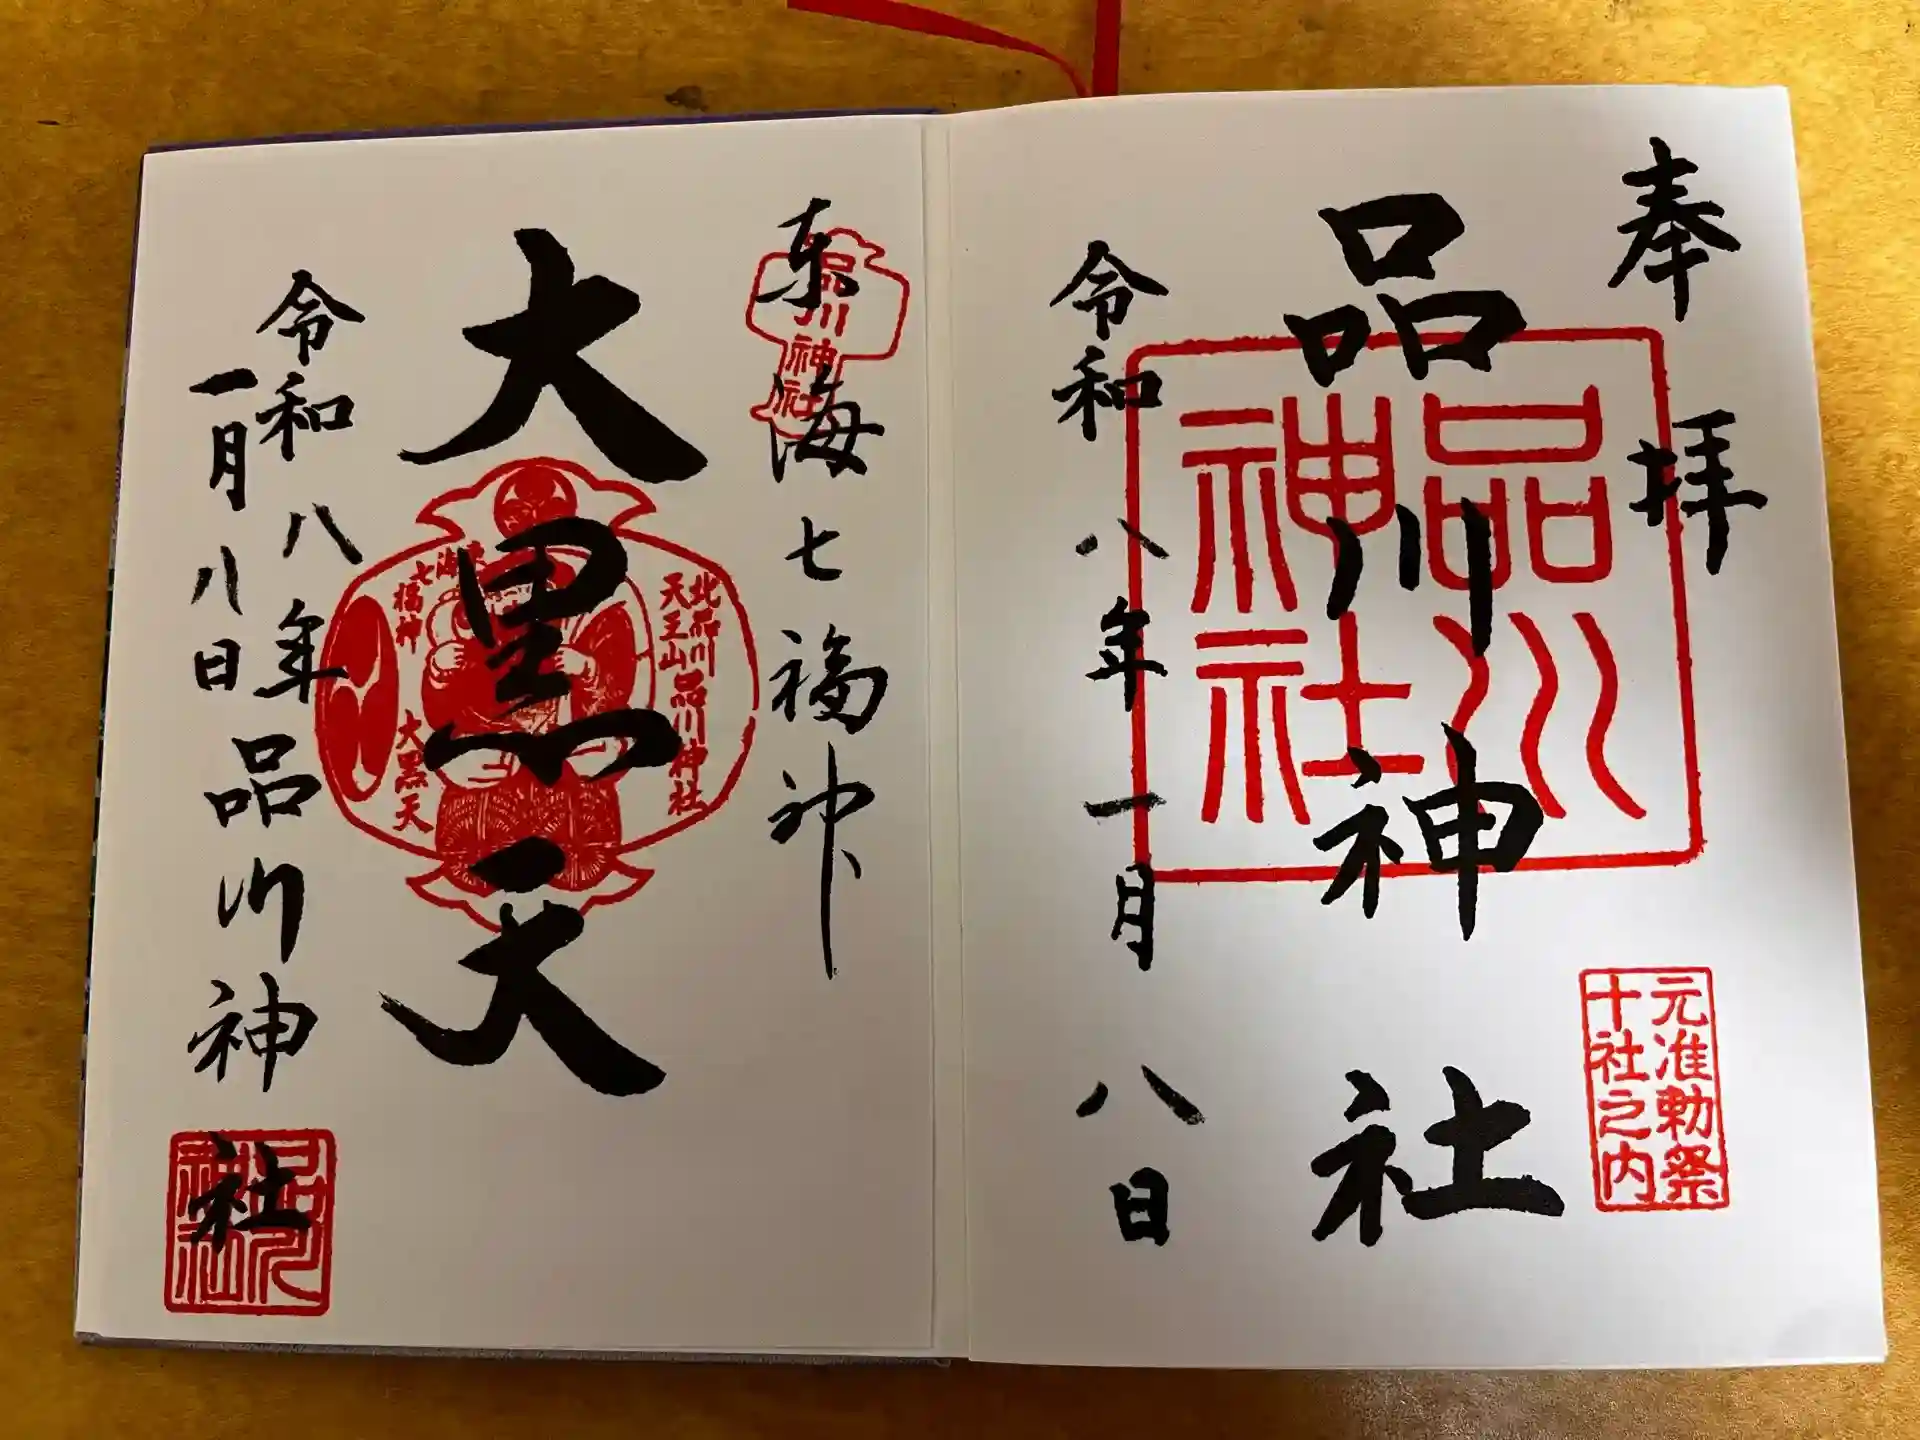 奉拝
品川神社
令和八年一月八日
品川神社
元准勅祭
十社之内
東海七福神
品川神社
大黒天
北品川
天王山 品川神社
東海七
福神
大黒天
令和八年
一月八日
品川神社
品川神社